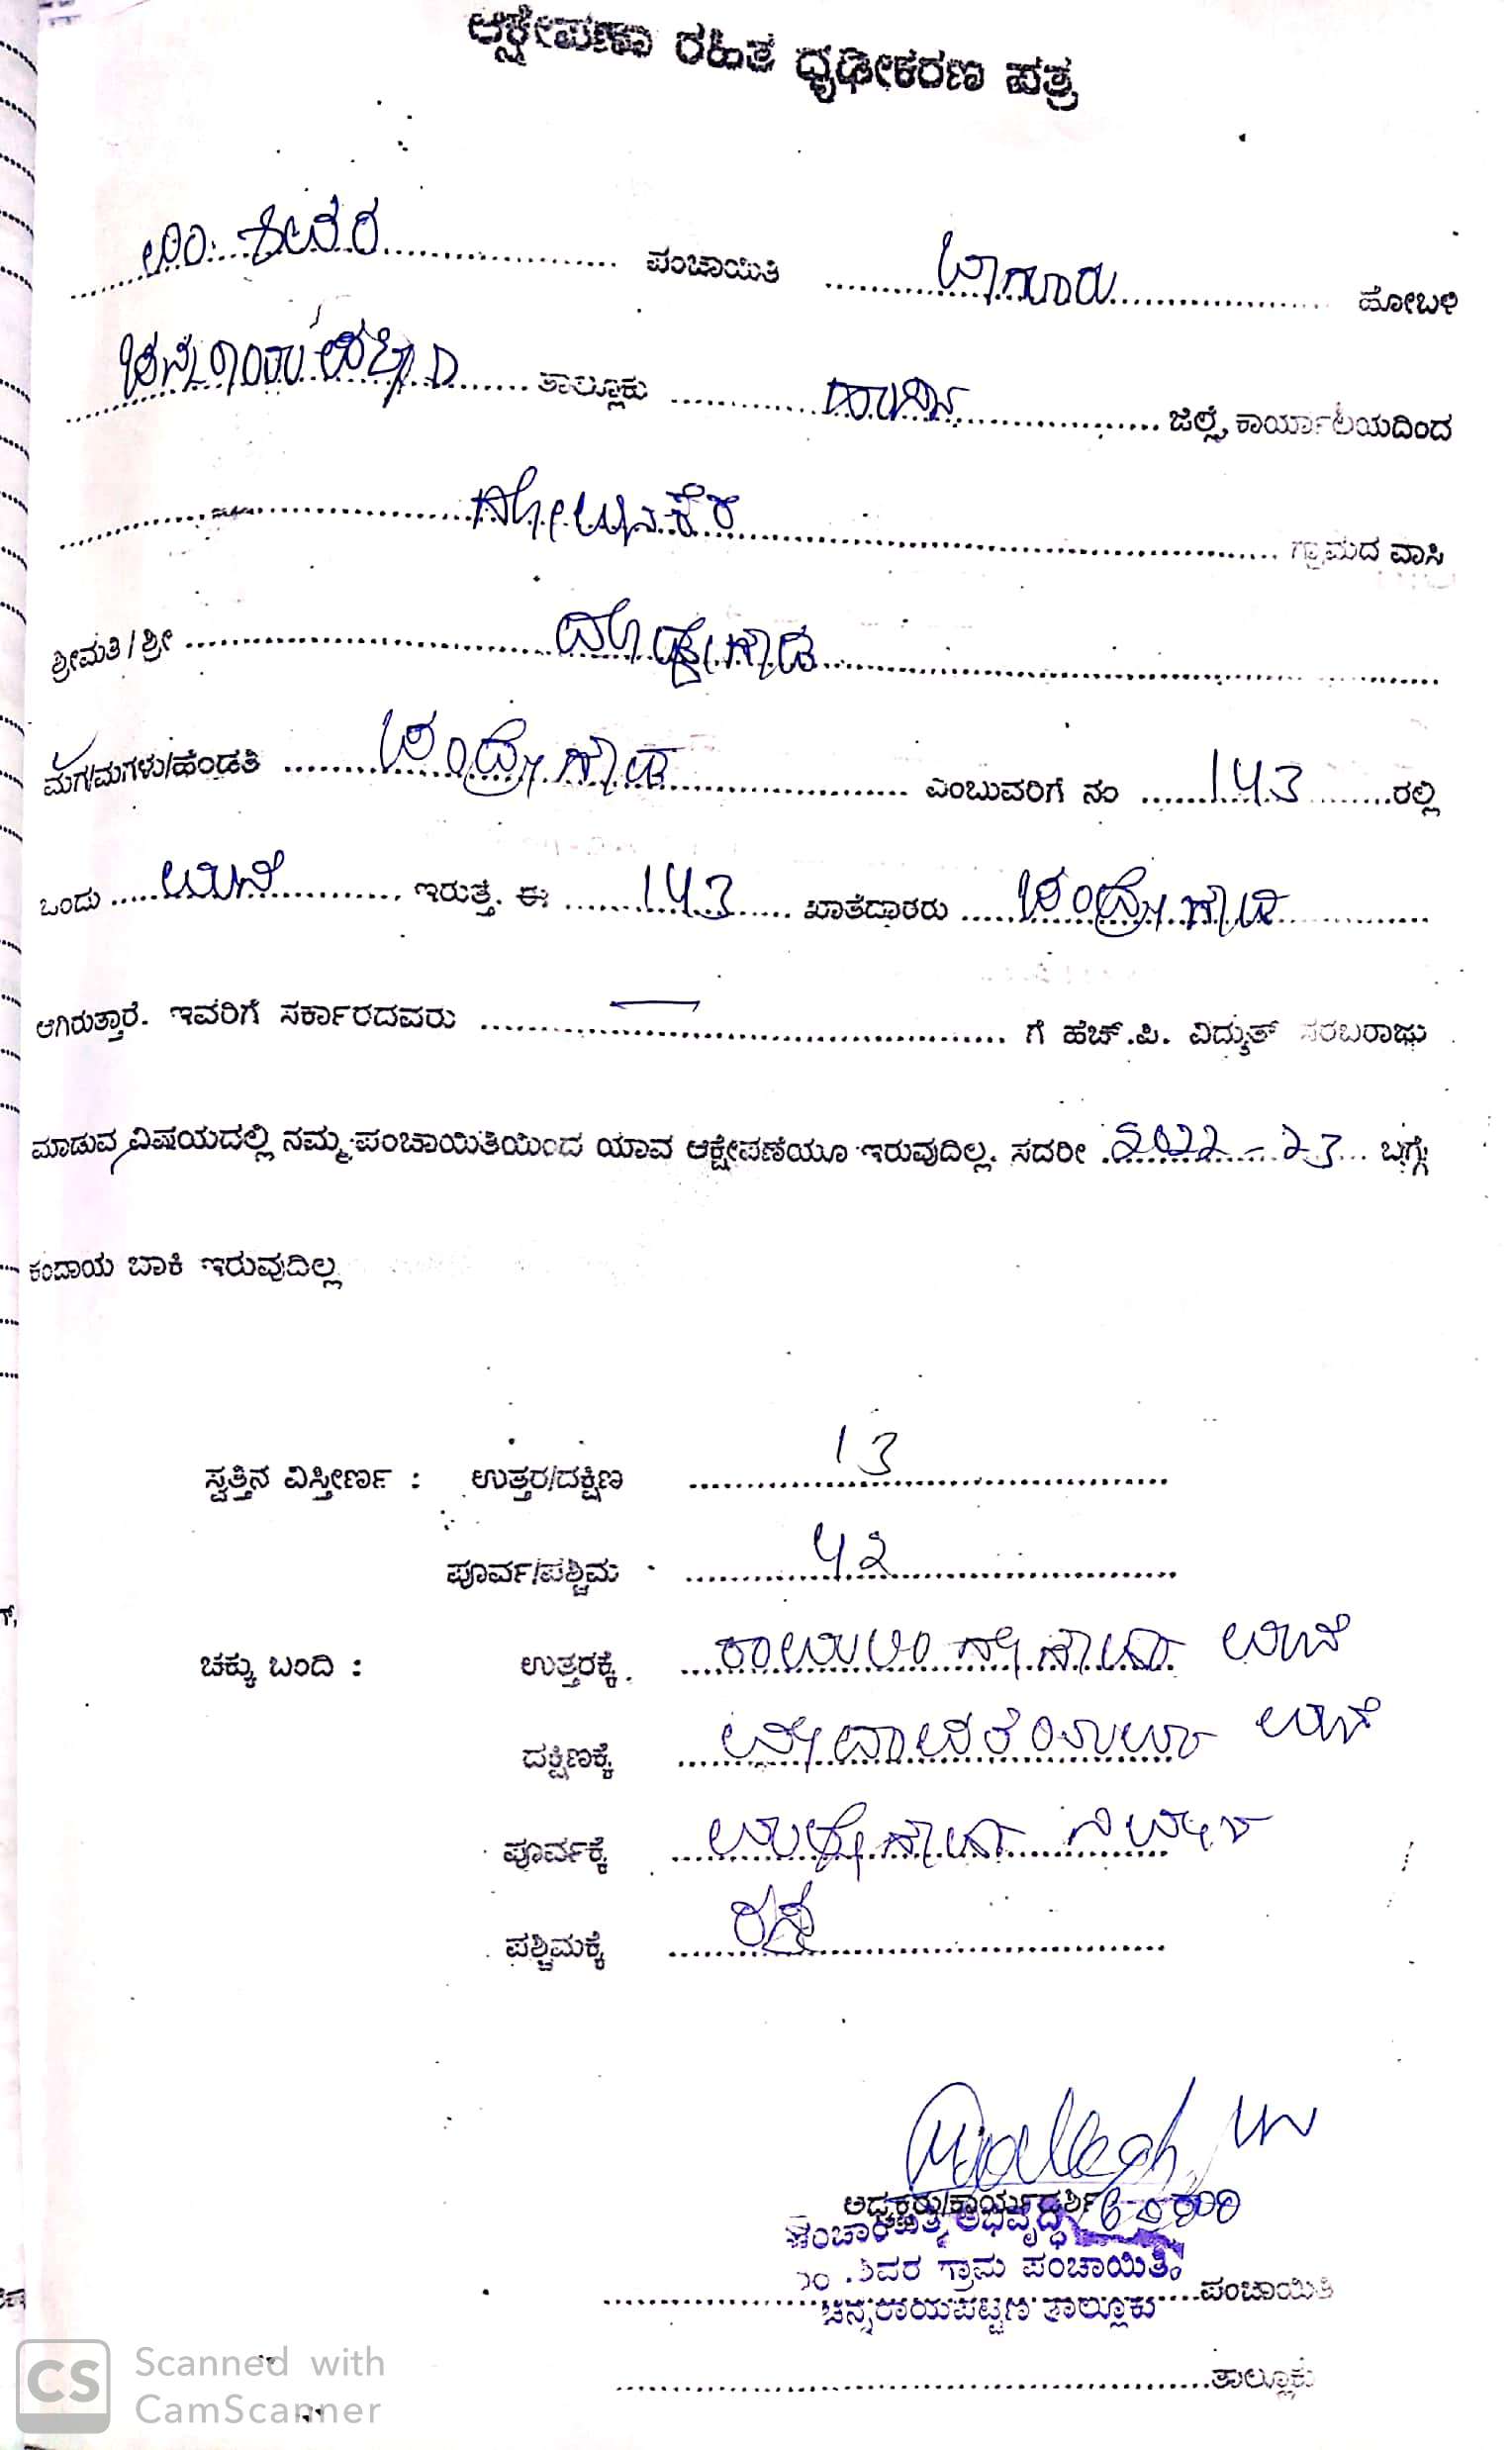 ಆಕ್ಷೇಪಣಾ ರಹಿತ ಧೃಢೀಕರಣ ಪತ್ರ
ಎಂ.ಶಿವರ ಪಂಚಾಯಿತಿ ಬಾಗೂರು ಹೋಬಳಿ
ಚನ್ನರಾಯಪಟ್ಟಣ ತಾಲ್ಲೂಕು ಹಾಸನ ಜಿಲ್ಲೆ, ಕಾರ್ಯಾಲಯದಿಂದ
ಗ್ರಾಮದ ವಾಸಿ
ಶ್ರೀಮತಿ / ಶ್ರೀ ದೊಡ್ಡೇಗೌಡ
ಮಗ/ಮಗಳು/ಹೆಂಡತಿ ಚಂದ್ರೇಗೌಡ ಎಂಬುವರಿಗೆ ನಂ 143 ರಲ್ಲಿ
ಒಂದು ಮನೆ ಇರುತ್ತೆ. ಈ 143 ಖಾತೆದಾರರು ಚಂದ್ರೇಗೌಡ
ಆಗಿರುತ್ತಾರೆ. ಇವರಿಗೆ ಸರ್ಕಾರದವರು — ಗೆ ಹೆಚ್.ಪಿ. ವಿದ್ಯುತ್ ಸರಬರಾಜು
ಮಾಡುವ ವಿಷಯದಲ್ಲಿ ನಮ್ಮ ಪಂಚಾಯಿತಿಯಿಂದ ಯಾವ ಆಕ್ಷೇಪಣೆಯೂ ಇರುವುದಿಲ್ಲ. ಸದರೀ 2022-23 ಬಗ್ಗೆ
ಕಂದಾಯ ಬಾಕಿ ಇರುವುದಿಲ್ಲ
ಸ್ವತ್ತಿನ ವಿಸ್ತೀರ್ಣ : ಉತ್ತರ/ದಕ್ಷಿಣ 13
ಪೂರ್ವ/ಪಶ್ಚಿಮ 42
ಚಕ್ಕು ಬಂದಿ : ಉತ್ತರಕ್ಕೆ ಮನೆ
ದಕ್ಷಿಣಕ್ಕೆ ಮನೆ
ಪೂರ್ವಕ್ಕೆ
ಪಶ್ಚಿಮಕ್ಕೆ ರಸ್ತೆ
ಅಧ್ಯಕ್ಷರು/ಕಾರ್ಯದರ್ಶಿ
ಪಂಚಾಯಿತಿ ಅಭಿವೃದ್ಧಿ
ಶಿವರ ಗ್ರಾಮ ಪಂಚಾಯಿತಿ
ಪಂಚಾಯಿತಿ
ಚನ್ನರಾಯಪಟ್ಟಣ ತಾಲ್ಲೂಕು
ತಾಲ್ಲೂಕು
CS Scanned with
CamScanner